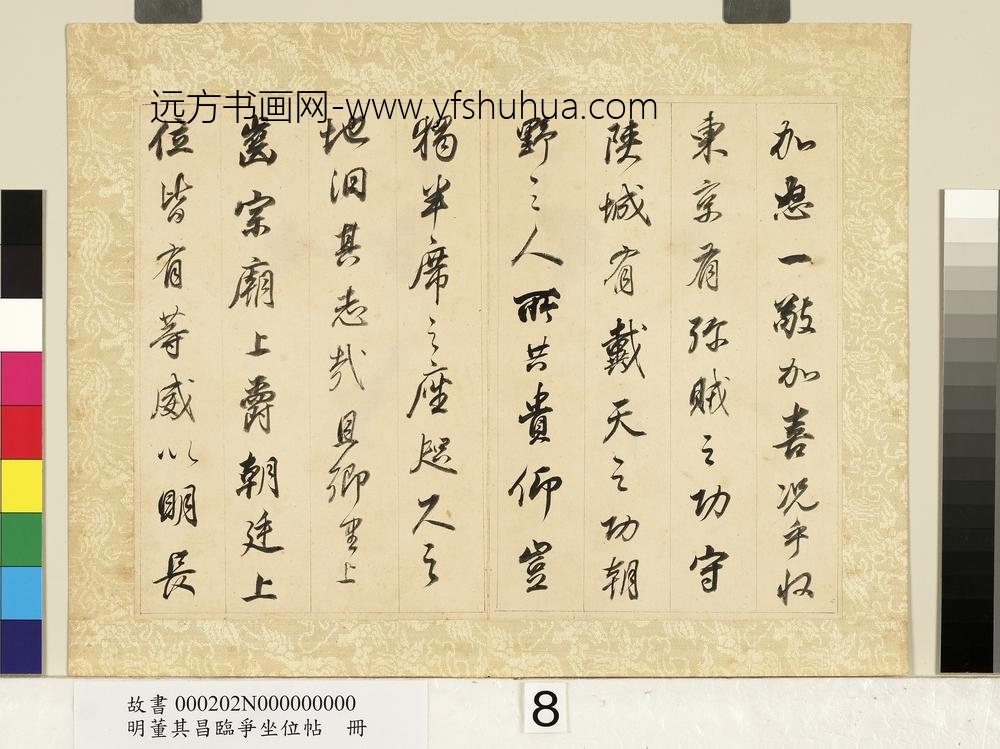 远方书画网-www.yfshuhua.com
加怒一敬加喜況乎收
東京有殄賊之功守
陝城有戴天之功朝
野之人所共貴仰豈
獨半席之座咫尺之
地汩其志哉且鄉里上
齒宗廟上爵朝廷上
位皆有等威以明長
故書 000202N000000000
明董其昌臨爭坐位帖 冊
8